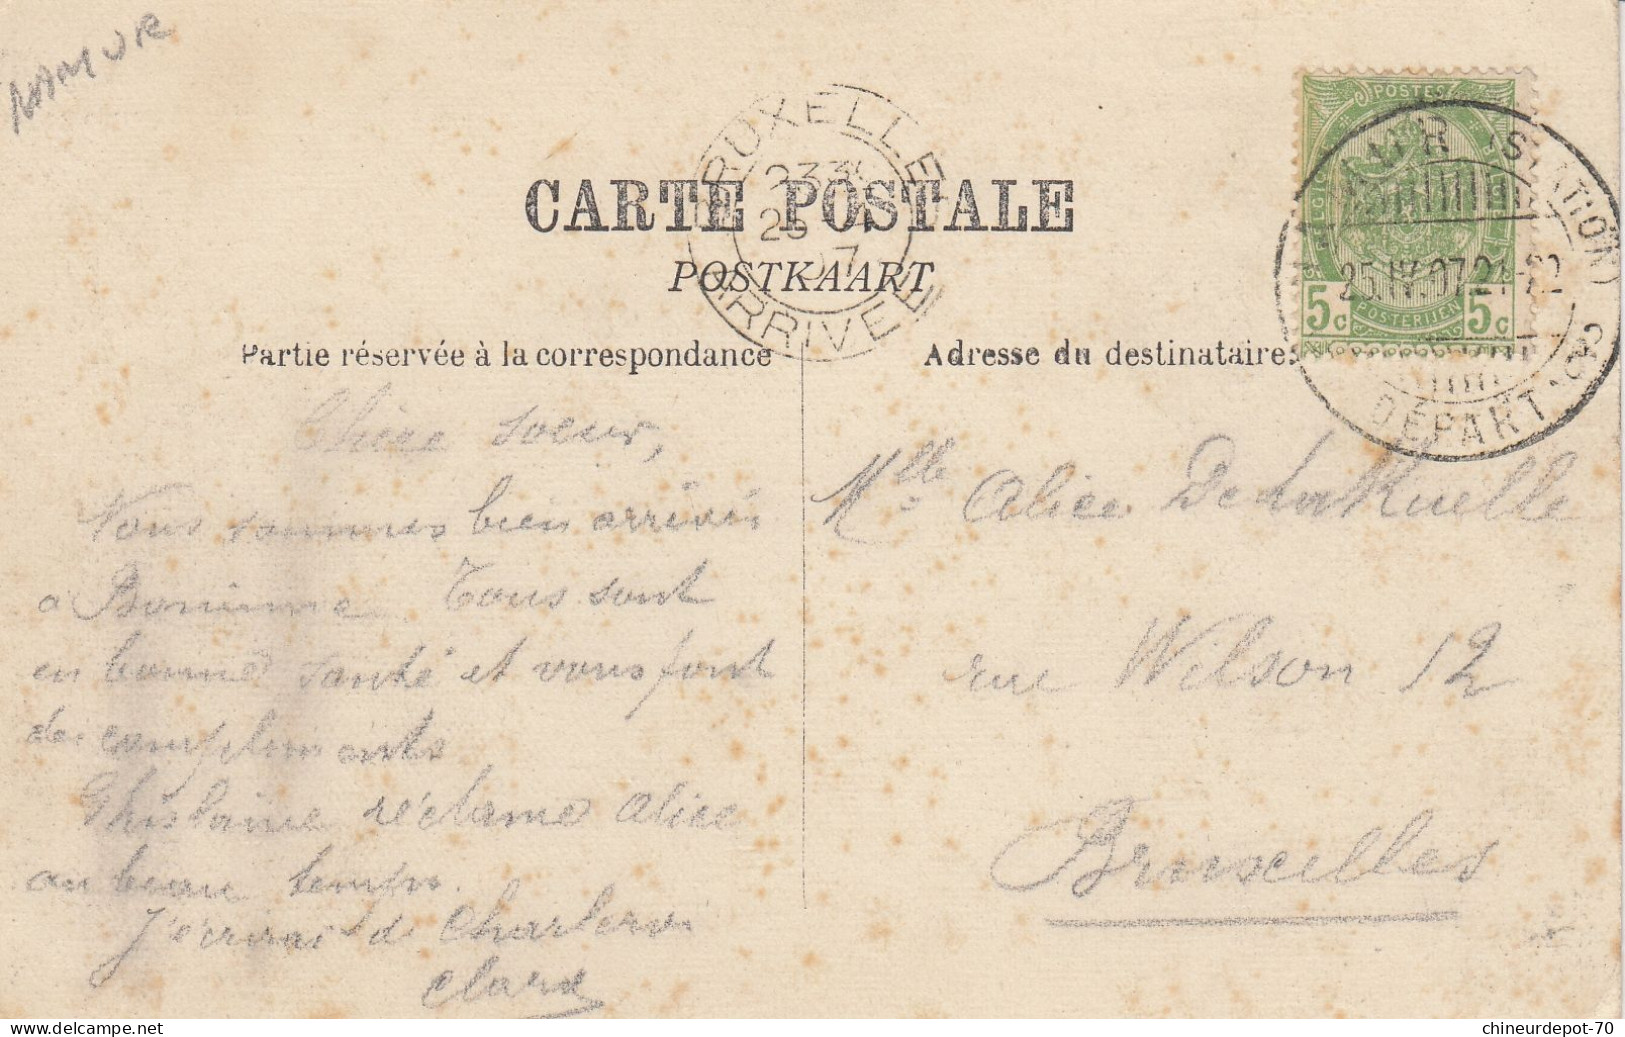 NAMUR
BRUXELLES
23 30
25
07
ARRIVEE
CARTE POSTALE
POSTKAART
Partie réservée à la correspondance
Adresse du destinataire
POSTES
5c POSTERIJEN 5c
NAMUR (STATION)
25.IV.07.21-22
DÉPART
Chère soeur,
Nous sommes bien arrivés
a Boninne Tous sont
en bonne santé et vous font
des compliments
Ghislaine réclame Alice
au beau temps.
J'écrirai de Charleroi
Clara
Melle Alice DeLaRuelle
rue Wilson 12
Bruxelles
delcampe.net
chineurdepot-70